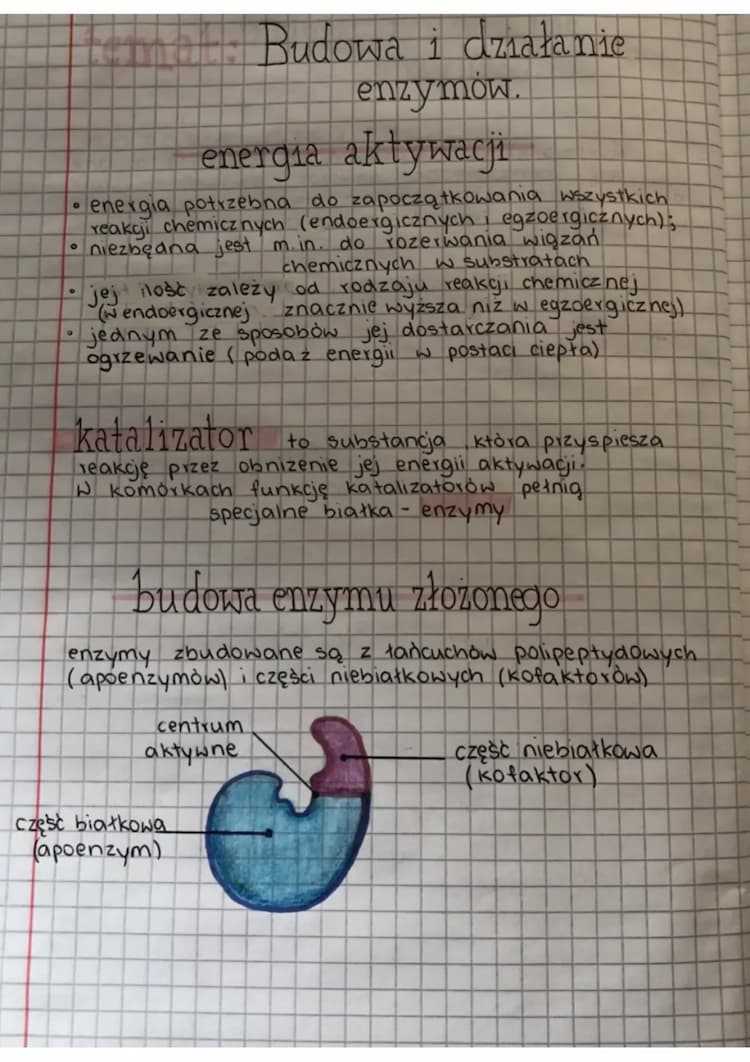 temat: Budowa i działanie
enzymów.
energia aktywacji
• energia potrzebna do zapoczątkowania wszystkich
reakcji chemicznych (endoergicznych i egzoergicznych);
• niezbędna jest m.in. do rozerwania wiązań
chemicznych w substratach
• jej ilość zależy od rodzaju reakcji chemicznej
(w endoergicznej znacznie wyższa niż w egzoergicznej)
• jednym ze sposobów jej dostarczania jest
ogrzewanie (podaż energii w postaci ciepła)
katalizator to substancja, która przyspiesza
reakcję przez obniżenie jej energii aktywacji.
W komórkach funkcję katalizatorów pełnią
specjalne białka - enzymy
budowa enzymu złożonego
enzymy zbudowane są z łańcuchów polipeptydowych
(apoenzymów) i części niebiałkowych (kofaktorów)
centrum
aktywne
część niebiałkowa
(kofaktor)
część białkowa
(apoenzym)